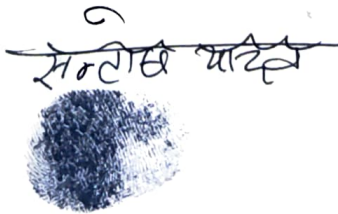 सन्तोष यादव